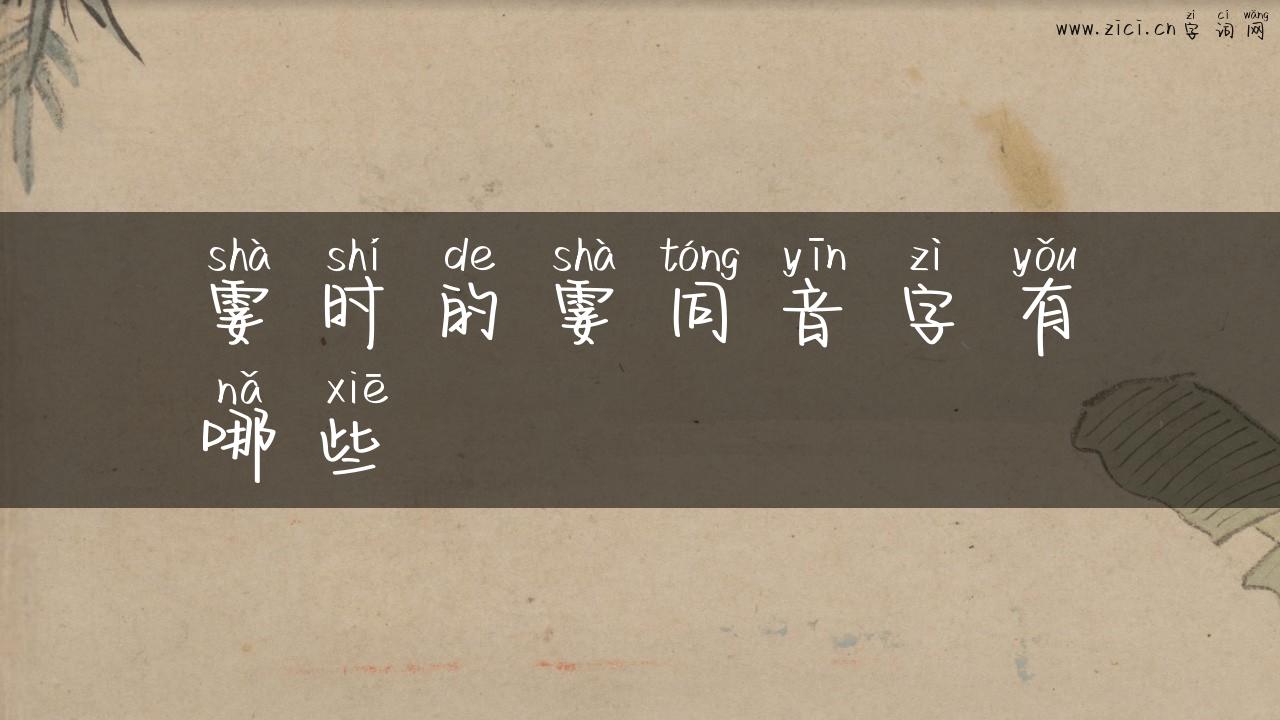 zì cí wǎng
www.zici.cn 字 词 网
shà shí de shà tóng yīn zì yǒu
霎 时 的 霎 同 音 字 有
nǎ xiē
哪 些